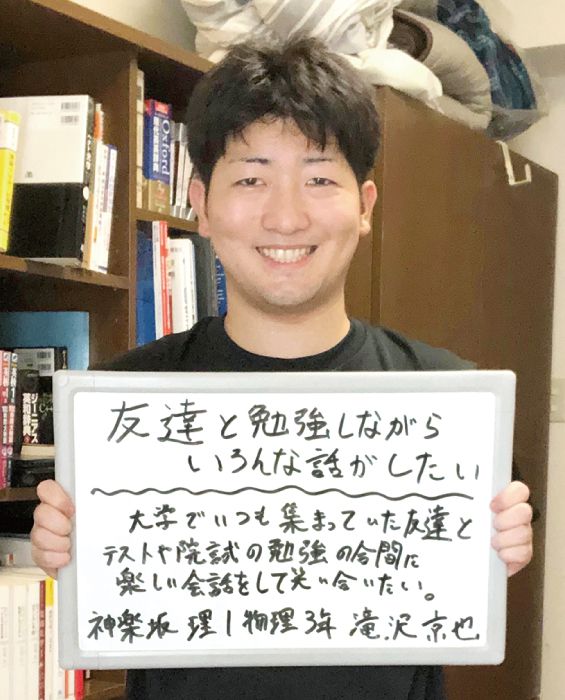 友達と勉強しながら
いろんな話がしたい
大学でいつも集まっていた友達と
テストや院試の勉強の合間に
楽しい会話をして笑い合いたい。
神楽坂 理1物理3年 滝沢京也
Oxford
ジーニアス
英和辞典